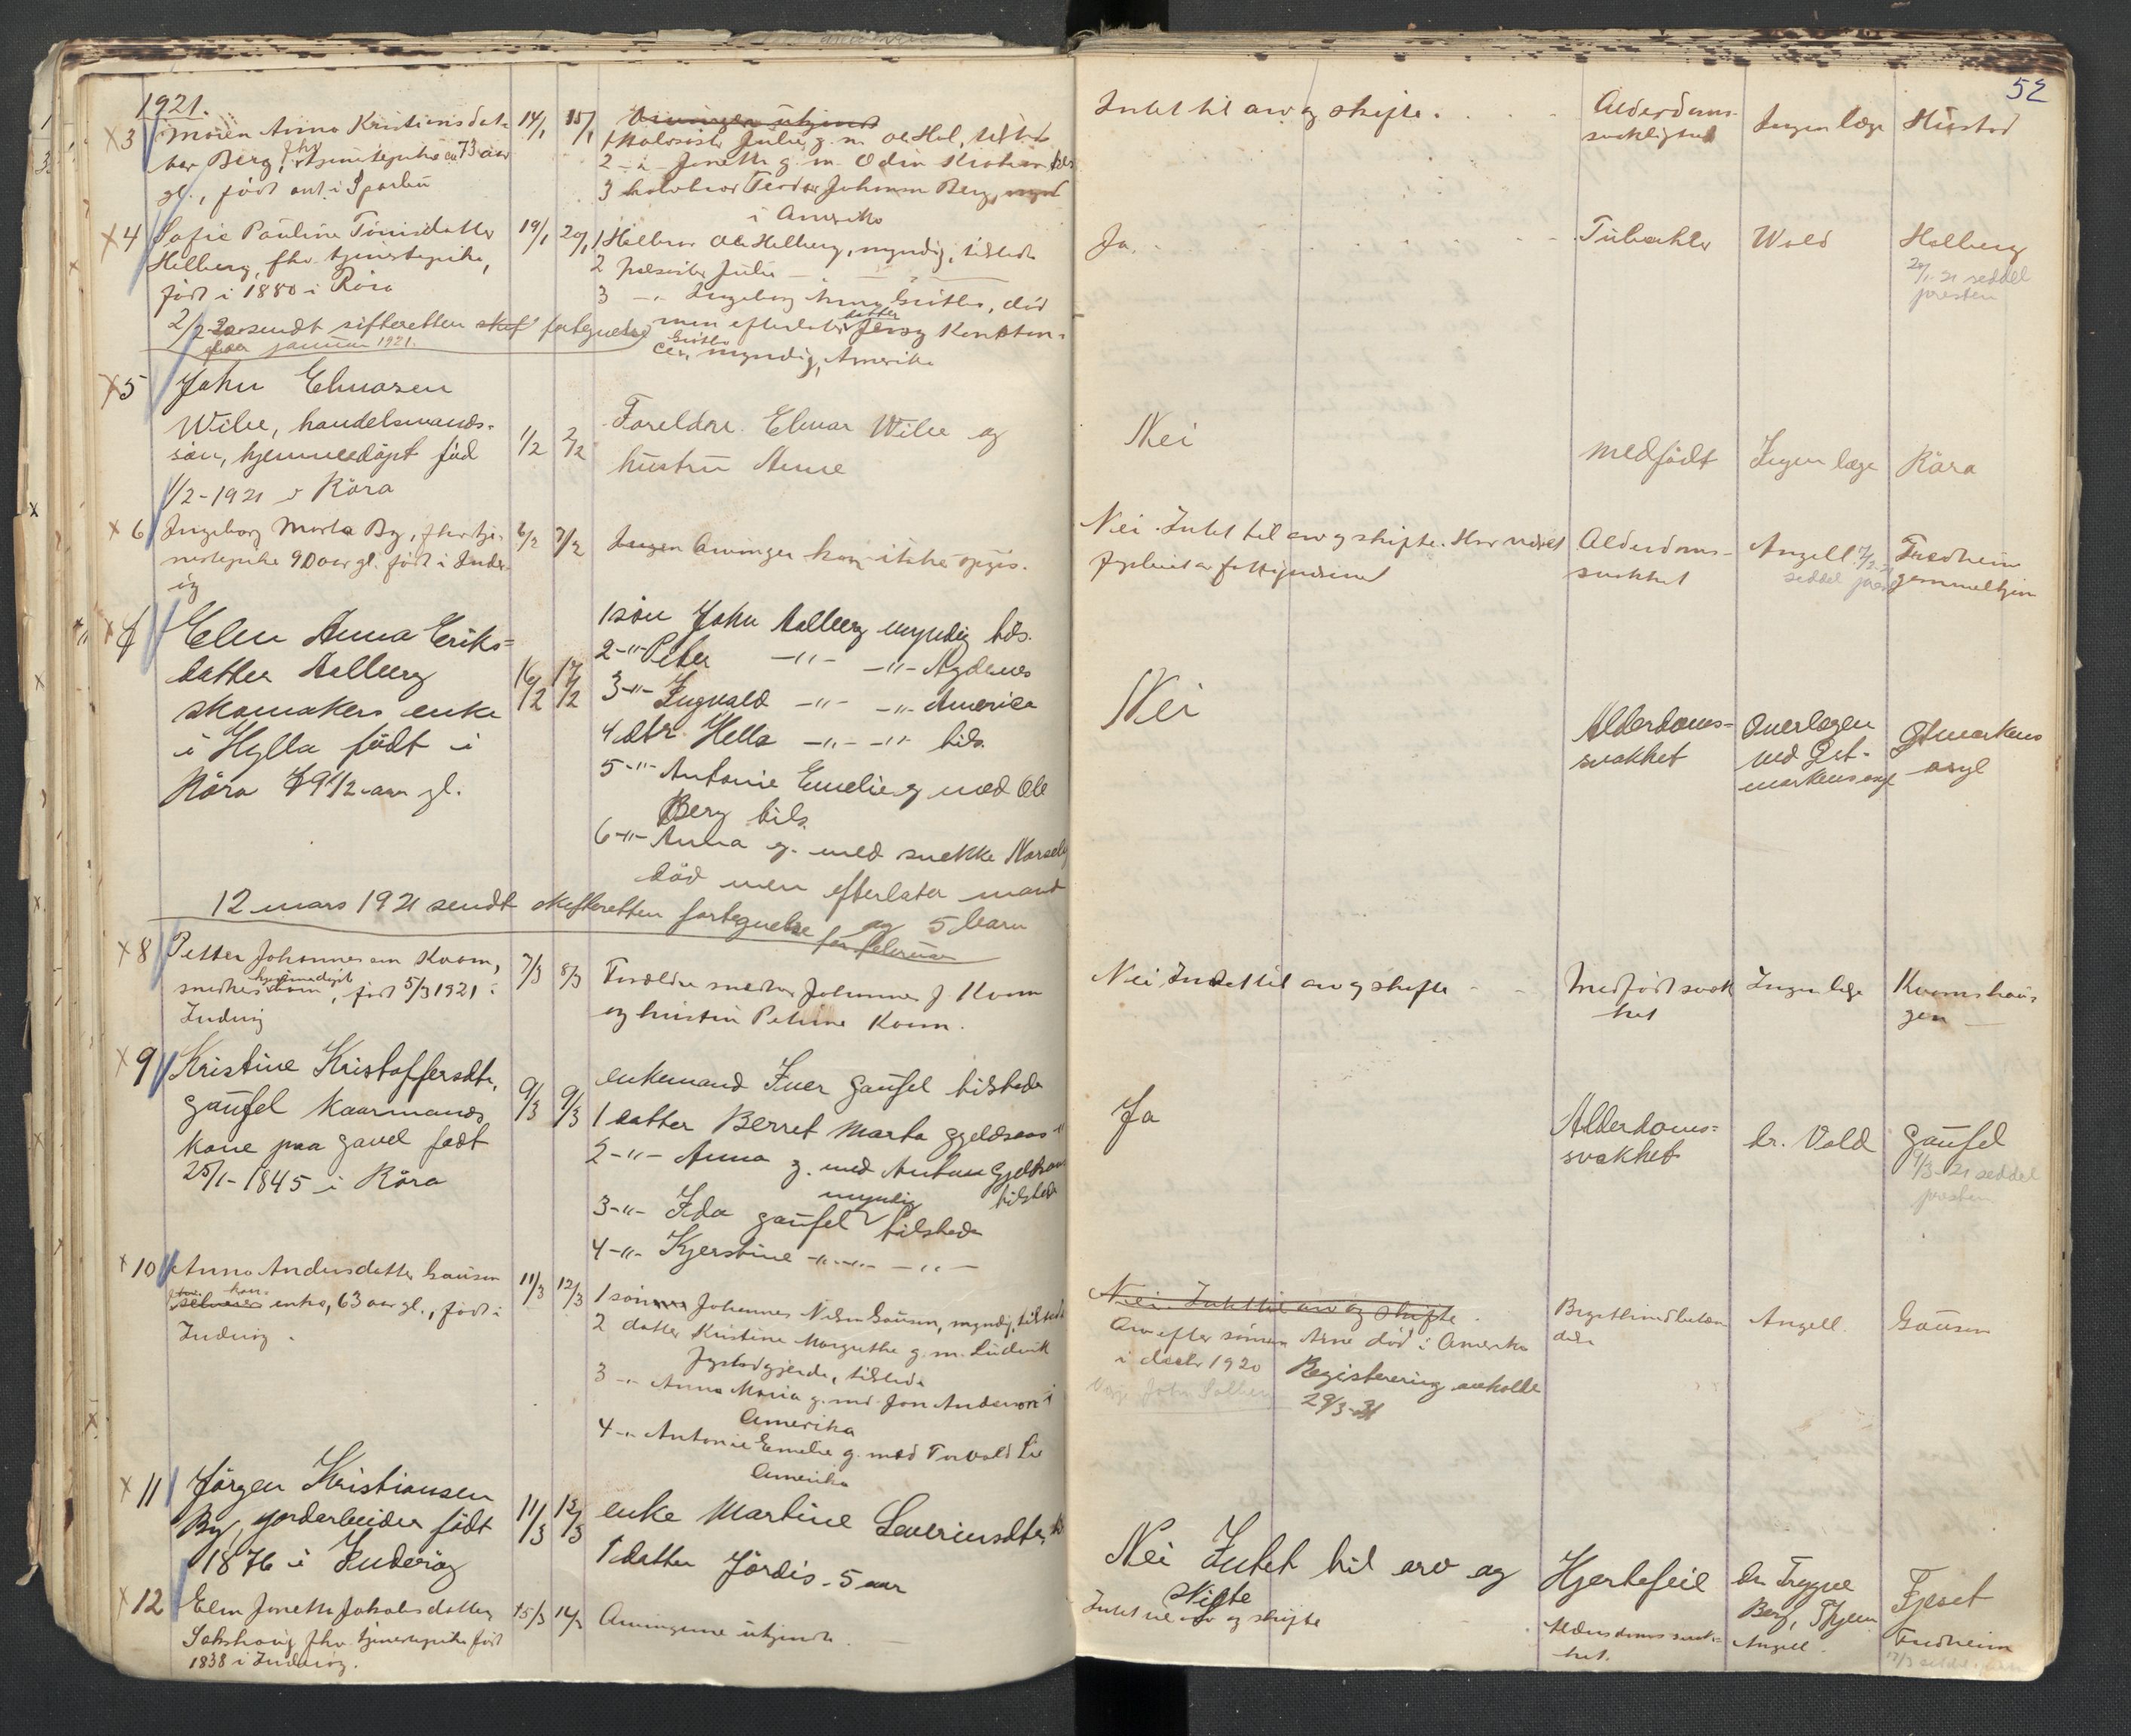 52
1921.
3 Maren Anna Kristiansdat-
ter Berg, fhv. tjenestepike ca 73 aar
gl., født ant. i Sparbu
14/1 15/1
Arvinger ukjendt
1 halvsøster Julie g. m. Ole Hol, tilst.
2 -"- Jonetta g. m. Odin
3 halvbror Teodor Johansen Berg, mynd
i Amerika
Intet til arv og skifte.
Alderdoms-
svaklighet
Ingen læge
Hustad
4 Sofie Pauline Tønisdatter
Helberg, fhv. tjenestepike,
født i 1880 i Røra
19/1 20/1
1 Helbror Ole Helberg, myndig, tilstede
2 helsøster Julie
3 -"- Ingeborg Anna, død
men efterlater datter Jenny
myndig, Amerika
Ja.
Tuberkler
Wold
Helberg
20/1-21 seddel
presten
2/2 sendt skifteretten fortegnelse
for januar 1921.
5 John Elnasen
Wibe, handelsmands-
søn, hjemmedøpt fød
1/2-1921 i Røra
1/2 2/2
Foreldre Elnar Wibe og
hustru Anne
Nei
medfødt
Ingen læge
Røra
6 Ingeborg Marta By, fhv. tje-
nestepike 90 aar gl. født i Inder-
øy
6/2 7/2
Ingen Arvinger kan ikke opgis.
Nei. Intet til arv og skifte. Har været
forpleiet av fattigvæsenet
Alderdoms-
svakhet
Angell 7/2-21
seddel prest
Fredheim
gammelhjem
7 Elen Anna Eriks-
datter Aalberg
skomakers enke
i Hylla født i
Røra 79 1/2 aar gl.
16/2 17/2
1 søn John Aalberg myndig tils.
2 -"- Peter -"- -"- Agdenes
3 -"- Ingvald -"- -"- America
4 dtr. Hella -"- -"- tils.
5 -"- Antonie Emelie g. med Ole
Berg tils.
6 -"- Anna g. med snekker
død men efterlater mand
og 5 barn
Nei
Alderdoms-
svakhet
Overlægen
ved Gst-
markens asyl
Gstmarkens
asyl
12 mars 1921 sendt skifteretten fortegnelse
for februar
8 Petter Johannessen Kvam,
snedkers barn, hjemmedøpt, født 5/3 1921 i
Inderøy
7/3 8/3
Forældre snedker Johannes J Kvam
og hustru Petrine Kvam.
Nei Intet til arv og skifte
Medfødt svak
het
Ingen læge
Kvamshaug
gen
9 Kristine Kristoffersdtr.
Gaufel Kaarmands
kone paa Gavel født
25/1-1845 i Røra
9/3 9/3
enkemand Iver Gaufel tilstede
1 datter Berret Marta Gjeldsaas -"-
2 -"- Anna g. med Anton Gjeldsaas
tilstede
3 -"- Ida Gaufel myndig tilstede
4 -"- Kjerstine -"- -"-
Ja
Alderdoms-
svakhet
dr. Vold
Gaufel
9/3-21 seddel
presten
10 Anna Andersdatter Saursen
enke, 63 aar gl., født i
Inderøy.
11/3 12/3
1 søn Johannes Nilsen Saursen, myndig, tilstede
2 datter Kristine Margrethe g. m. Ludvik
tilstede
3 -"- Anna Maria g. med Jon Anderson i
Amerika
4 -"- Antonie Emelie g. med Torvald Lie
Amerika
Nei. Intet til arv og skifte.
Arv efter sønnen Arne død i Amerika
i decbr 1920
Registrering avholdt
29/3-21
Brystbetæn
delse
Angell.
Saursen
11 Jørgen Kristiansen
By, jordarbeider født
1876 i Inderøy
11/3 12/3
enke Martine Sevrinsdtr.
1 datter Jørdis - 5 aar
Nei Intet til arv og
skifte
Hjertefeil
dr Trygve
Berg, Skjeun
Fjeset
12 Elen Jonetta Jakobsdatter
Sakshaug fhv. tjenestepike født
1838 i Inderøy.
15/3 16/3
Arvingerne ukjendte.
Intet til arv og skifte
Alderdomssvak-
het.
Angell
Fredheim